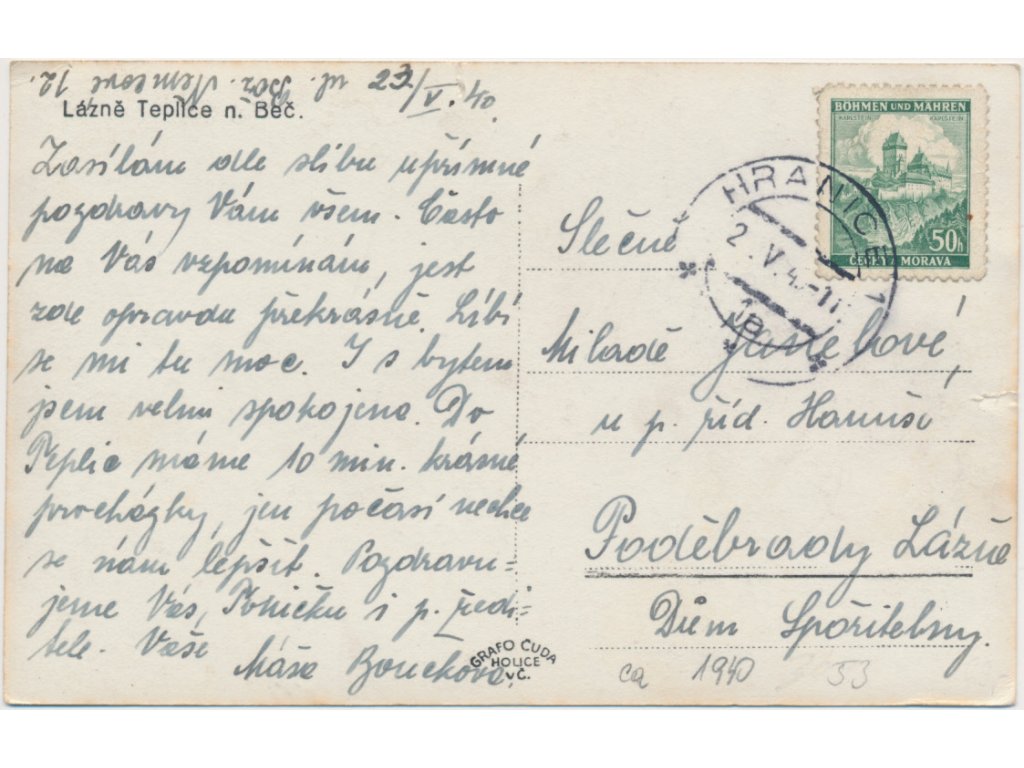 ul. Bož. Němcové 12.
23/V. 40.
Lázně Teplice n. Beč.
Zasílám dle slibu upřímné
pozdravy Vám všem. Často
na Vás vzpomínám, jest
zde opravdu překrásně. Líbí
se mi tu moc. I s bytem
jsem velmi spokojena. Do
Teplic máme 10 min. krásné
procházky, jen počasí nechce
se nám lepšit. Pozdravu-
jeme Vás, Toničku i p. ředi-
tele. Vaše
Máša Boučková.
GRAFO ČUDA
HOLICE
V Č.
BÖHMEN UND MÄHREN
KARLSTEIN KARLŠTEIN
50h
ČECHY A MORAVA
HRANICE 1
Slečně
Miladě
u p. říd. Hanuše
Poděbrady Lázně
Dům Spořitelny.
ca 1940 53